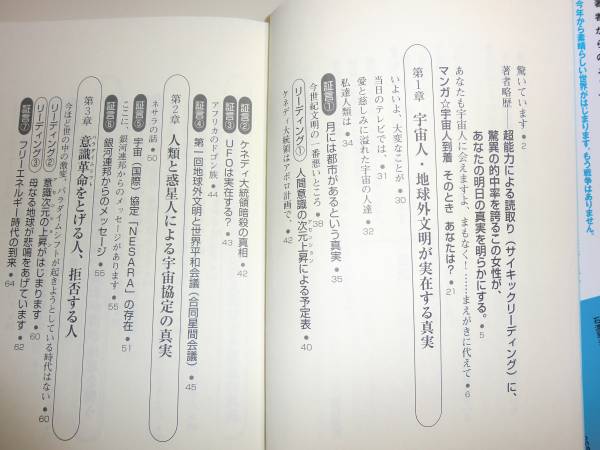 今年から素晴らしい世界がはじまります。もう戦争はありません。
驚いています ● 2
著者略歴——超能力による読取り(サイキックリーディング)に、
驚異の的中率を誇るこの女性が、
あなたの明日の真実を明らかにする。 ● 5
あなたも宇宙人に会えますよ、まもなく!……まえがきに代えて ● 6
マンガ☆宇宙人到着 そのとき あなたは? ● 21
第1章 宇宙人・地球外文明が実在する真実
いよいよ、大変なことが ● 30
当日のテレビでは、 ● 31
愛と慈しみに溢れた宇宙の人達 ● 32
私達人類は ● 34
証言① 月には都市があるという真実 ● 35
今世紀文明の一番悪いところ ● 38
リーディング① 人間意識の次元上昇による予定表 ● 40
アセンション
ケネディ大統領はアポロ計画で、 ● 42
証言② ケネディ大統領暗殺の真相 ● 42
証言③ UFOは実在する? ● 43
アフリカのドゴン族 ● 44
証言④ 第一回地球外文明と世界平和会議(合同星間会議) ● 45
第2章 人類と惑星人による宇宙協定の真実
ネサラの話 ● 50
証言⑤ 宇宙(国際)協定「NESARA」の存在 ● 51
ここに、銀河連邦からのメッセージがあります ● 55
証言⑥ 銀河連邦からのメッセージ ● 55
第3章 意識革命をとげる人、拒否する人
今ほど世の中の激変、パラダイムシフトが起きようとしている時代はない ● 60
リーディング② 意識次元の上昇がはじまります ● 60
リーディング③ 母なる地球が悲鳴をあげています ● 62
証言⑦ フリーエネルギー時代の到来 ● 64